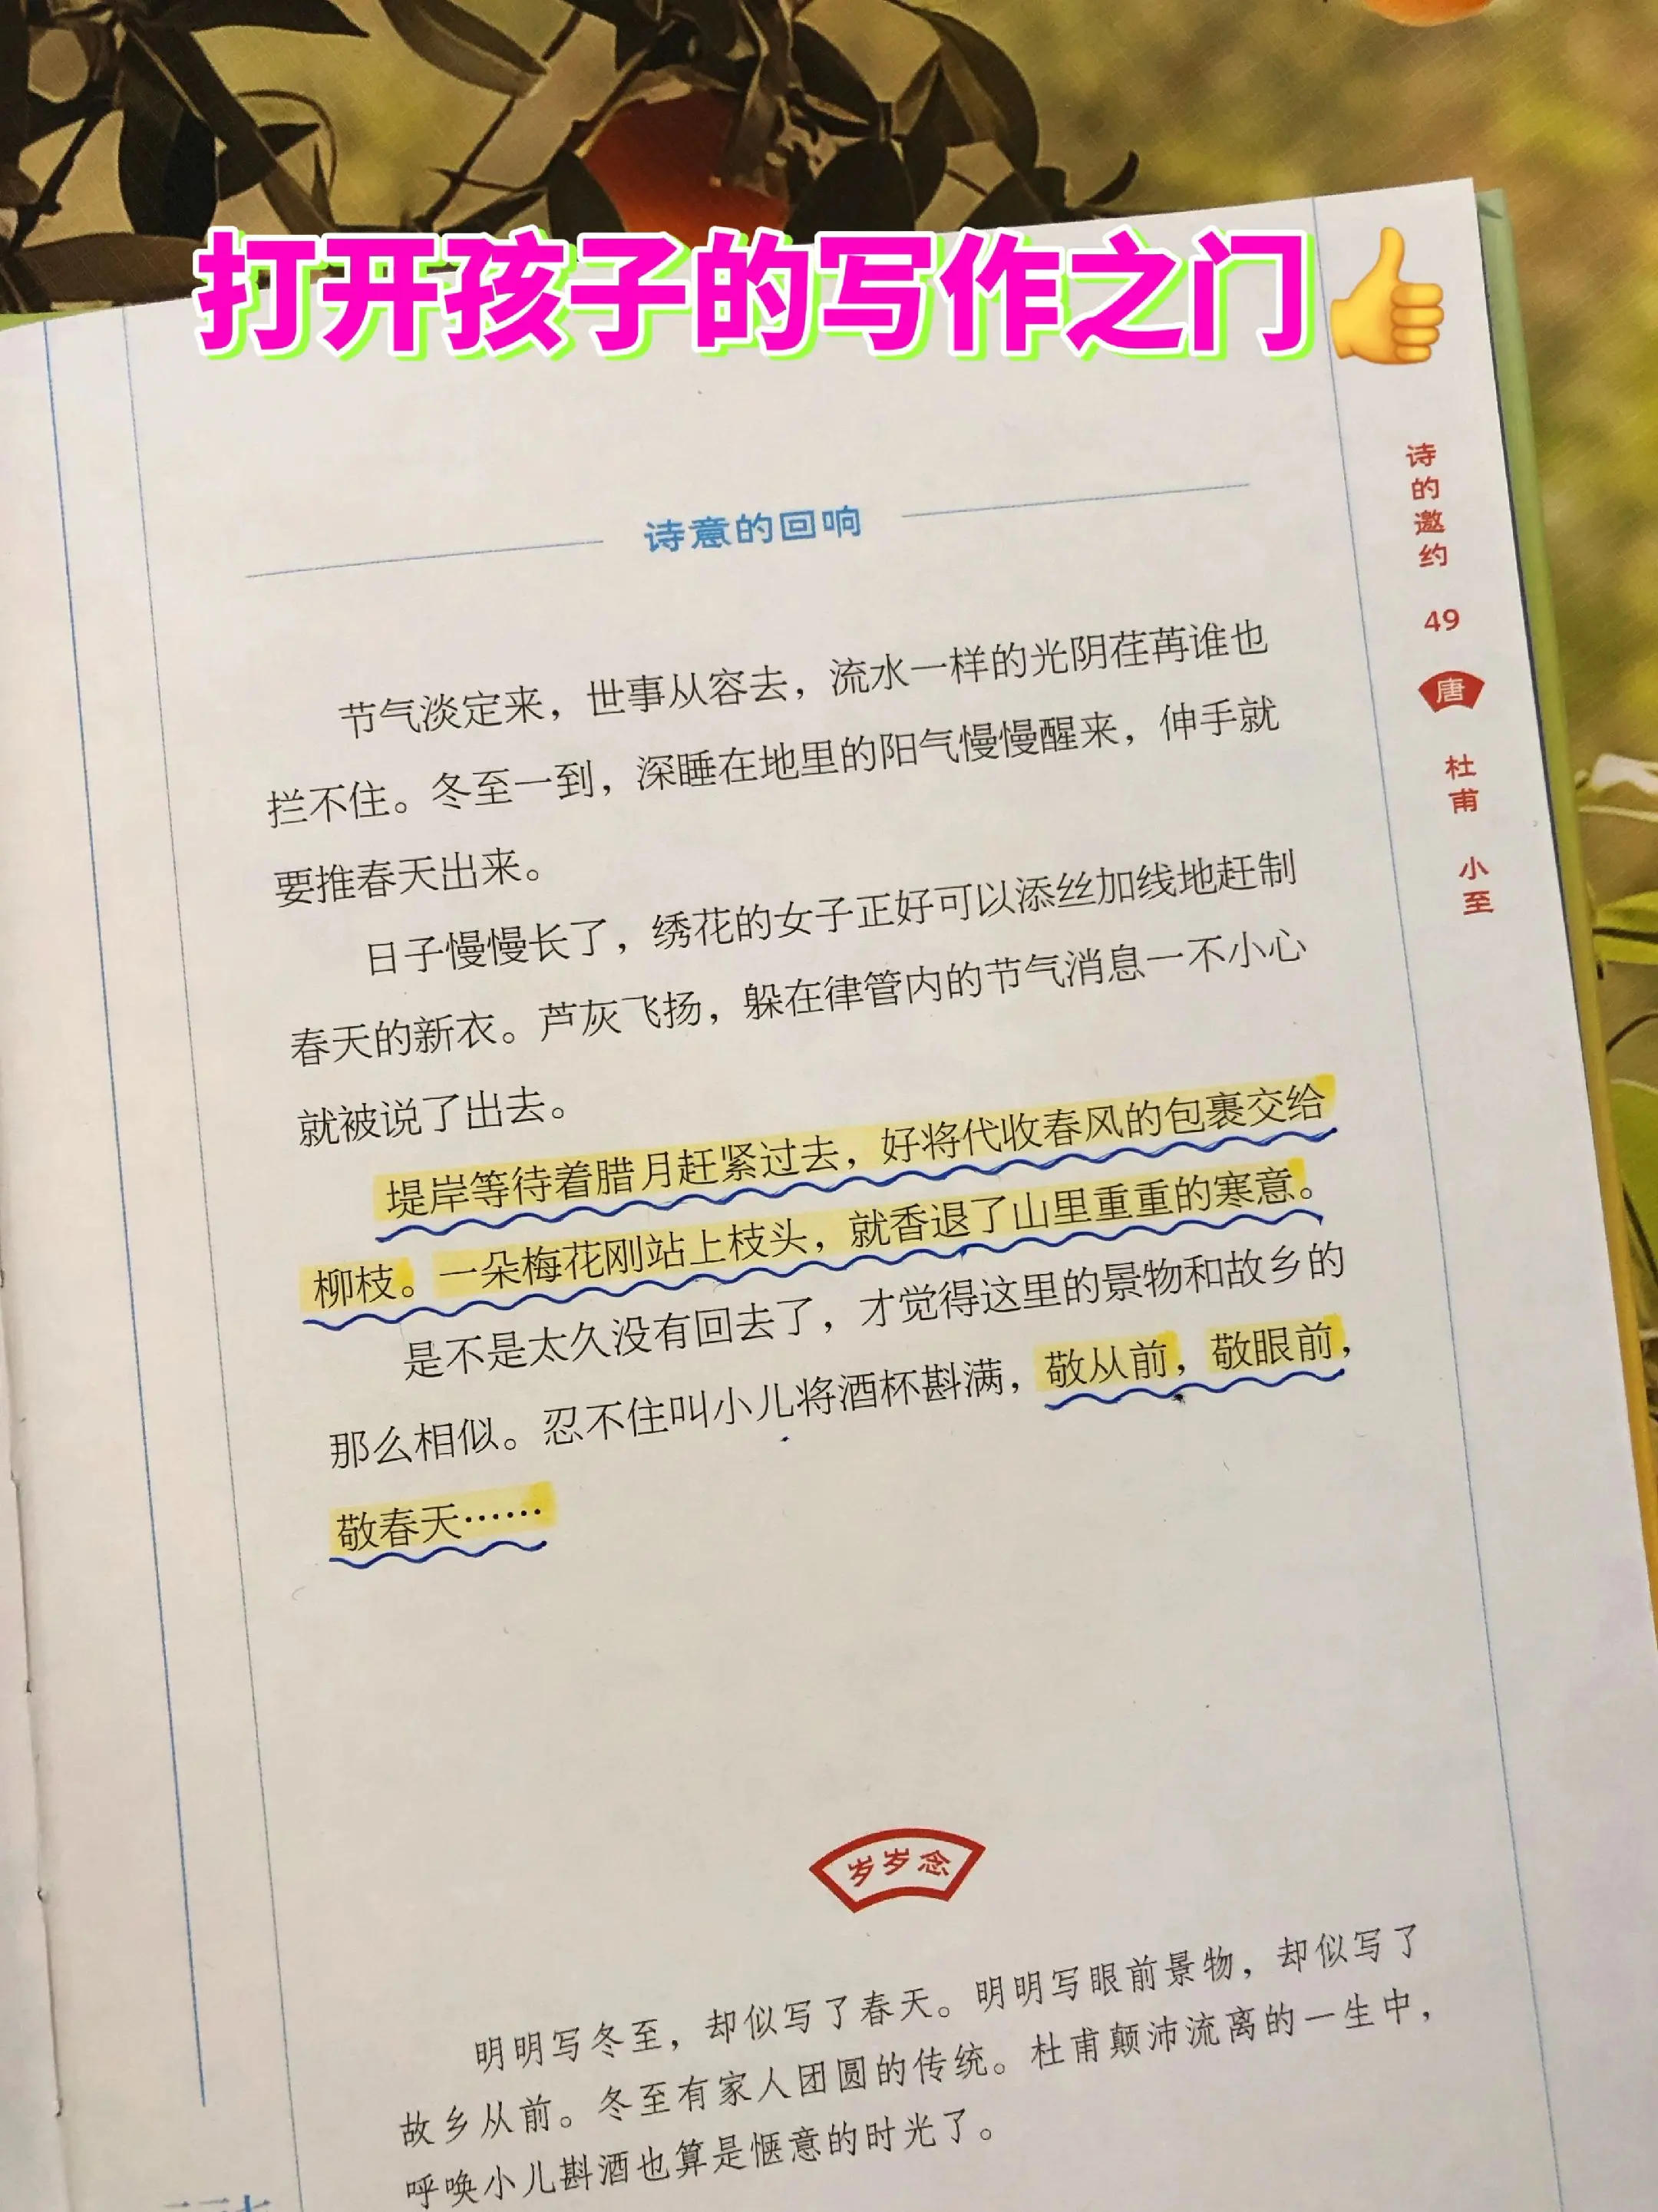 打开孩子的写作之门
诗的邀约
49
唐
杜甫
小至
诗意的回响
节气淡定来，世事从容去，流水一样的光阴荏苒谁也
拦不住。冬至一到，深睡在地里的阳气慢慢醒来，伸手就
要推春天出来。
日子慢慢长了，绣花的女子正好可以添丝加线地赶制
春天的新衣。芦灰飞扬，躲在律管内的节气消息一不小心
就被说了出去。
堤岸等待着腊月赶紧过去，好将代收春风的包裹交给
柳枝。一朵梅花刚站上枝头，就香退了山里重重的寒意。
是不是太久没有回去了，才觉得这里的景物和故乡的
那么相似。忍不住叫小儿将酒杯斟满，敬从前，敬眼前，
敬春天……
岁岁念
明明写冬至，却似写了春天。明明写眼前景物，却似写了
故乡从前。冬至有家人团圆的传统。杜甫颠沛流离的一生中，
呼唤小儿斟酒也算是惬意的时光了。